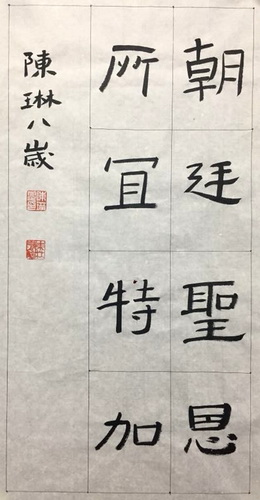 朝廷聖恩
所宜特加
陳琳八歲